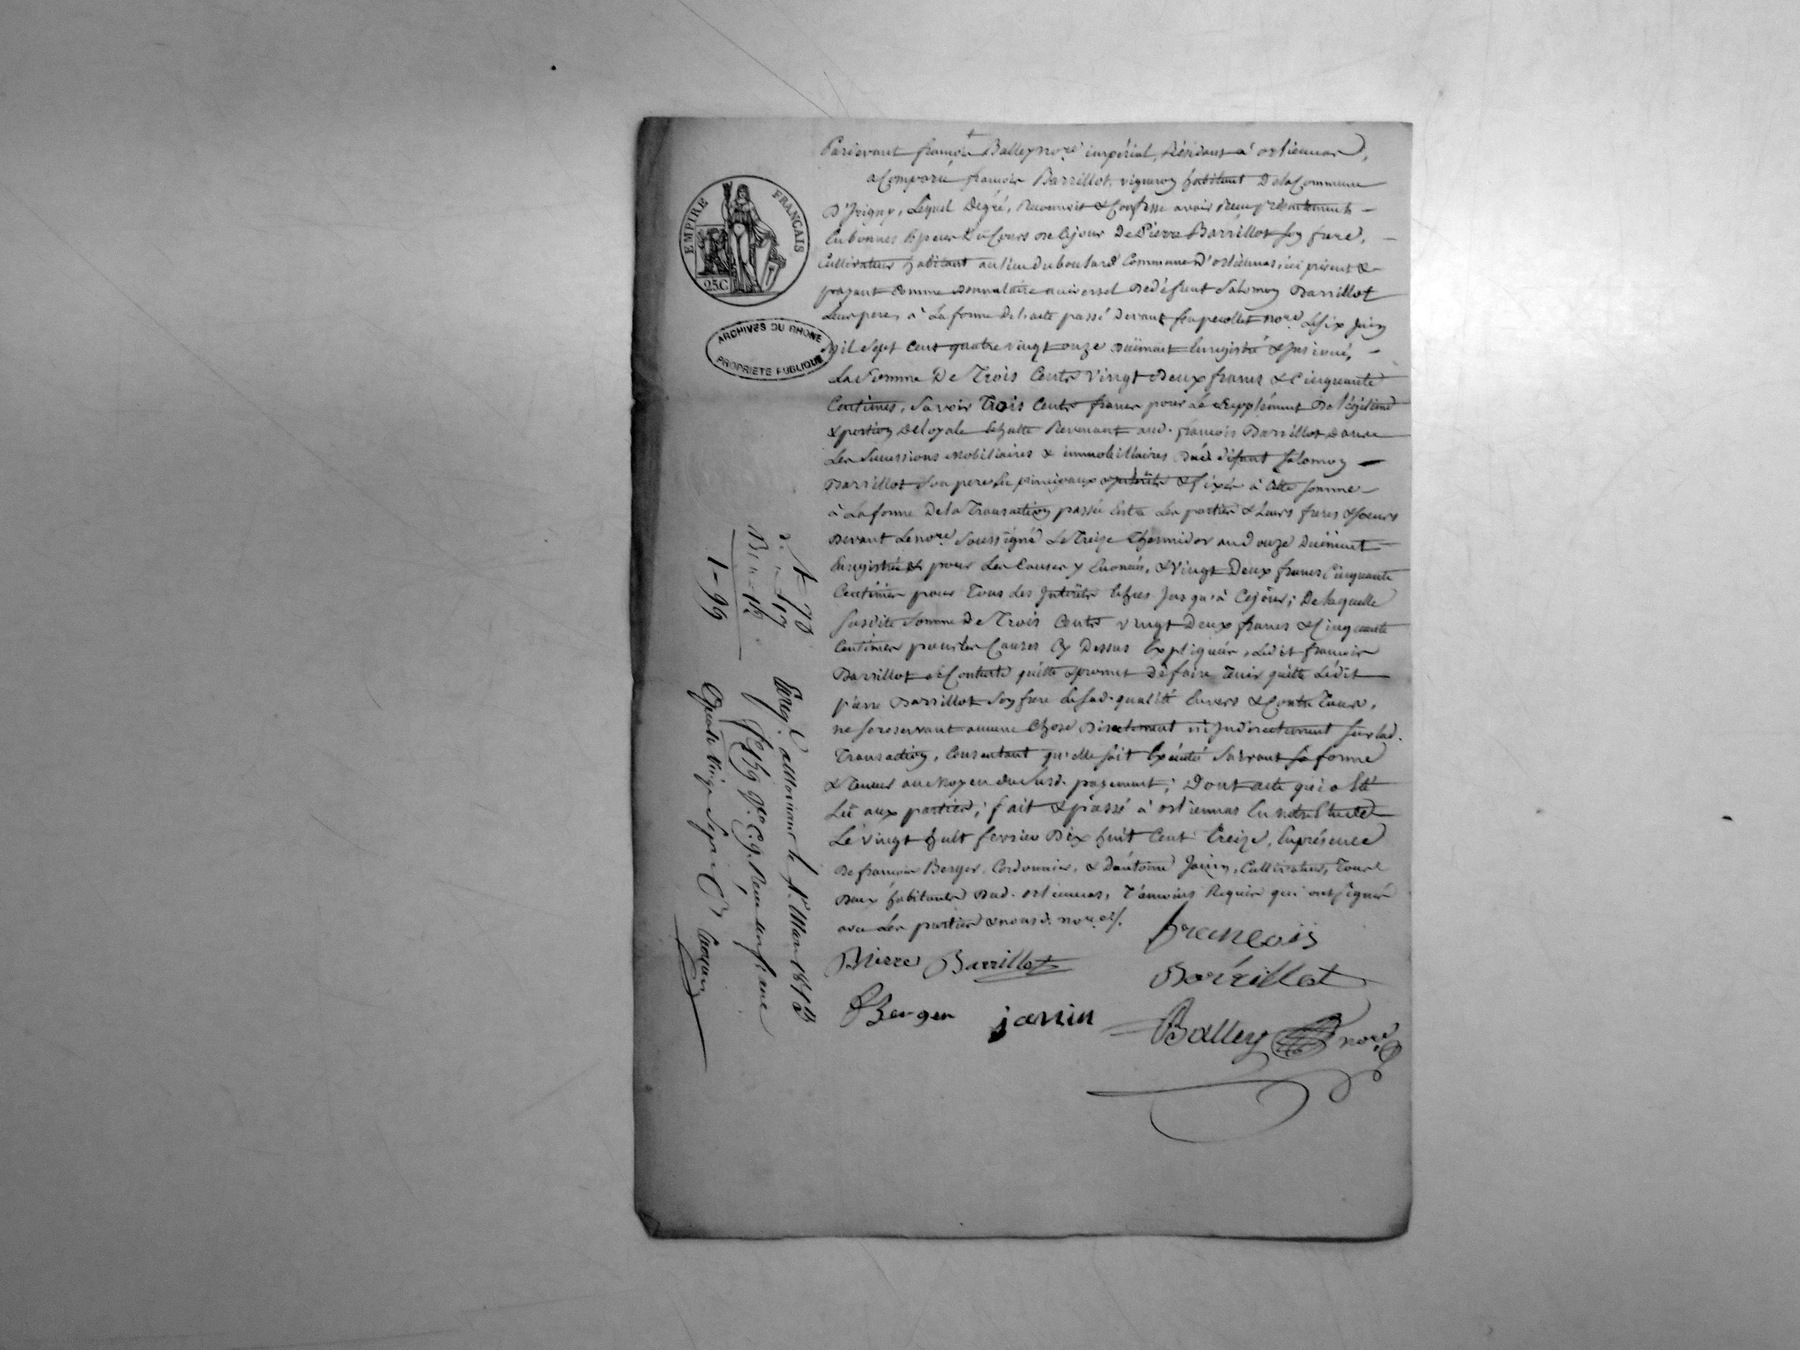 EMPIRE FRANÇAIS
25C
ARCHIVES DU RHONE
PROPRIETE PUBLIQUE
Pardevant françois Balley no.re impérial, Résidant à orliennas,
a Comparu françois Barrillot, vigneron habitant de la Commune
D'Irigny, Lequel Degré, Reconnoit & Confesse avoir Reçu présentement
En bonnes Espèces de Cours de Cejour De Pierre Barrillot son frere,
Cultivateur habitant au lieu du boulard Commune D'orliennas, ici présent &
payant Comme Donnataire universel De défunt Salomon Barrillot
Leur pere, à La forme De l'acte passé Devant feu no.re Le six juin
mil sept Cent quatre vingt onze Düement Enregistré & Insinué,
La Somme De Trois Cents vingt Deux francs & Cinquante
Centimes, Savoir Trois Cents francs pour Le Supplément De légitime
& portion De loyale Echutte Revenant aud. françois Barrillot Dans
Les Successions Mobiliaires & immobiliaires Dud. défunt Salomon
Barrillot Son pere En principaux & fixés à Cette Somme
à La forme De la Transaction passée Entre Les parties & Leurs freres & Soeurs
Devant Le no.re Soussigné Le Treize Thermidor an Douze Düement
Enregistrée & pour Les Causes y Enoncés, & Vingt Deux francs Cinquante
Centimes pour Tous Les Intérêts Echus Jusqu'à Cejour; De laquelle
Susdite Somme De Trois Cents vingt Deux francs & Cinquante
Centimes pour Les Causes Cy Dessus Expliquées, Ledit françois
Barrillot se Contente quitte & promet De faire Tenir quitte Ledit
pierre Barrillot Son frere En Sad. qualité Envers & Contre Tous,
ne Se reservant aucune Chose Directement ni Indirectement Sur Lad.
Transaction, Consentant qu'elle Soit Exécutée Suivant Sa forme
& Teneur au Moyen du Susd. payement; Dont acte qui a Eté
Lu aux parties; fait & passé à orliennas En notre Etude
Le vingt huit fevrier Dix huit Cent Treize, En présence
De françois Berger, Cordonnier, & D'antoine Janin, Cultivateur, Tous
Deux habitants Dud. orliennas, Témoins Requis qui ont Signé
avec Les parties & nous d. no.re
françois
Pierre Barrillot
Barrillot
Berger janin
Balley no.re
1-99
Enreg.é à Mornant le 1.er Mars 1813
Reçu un franc